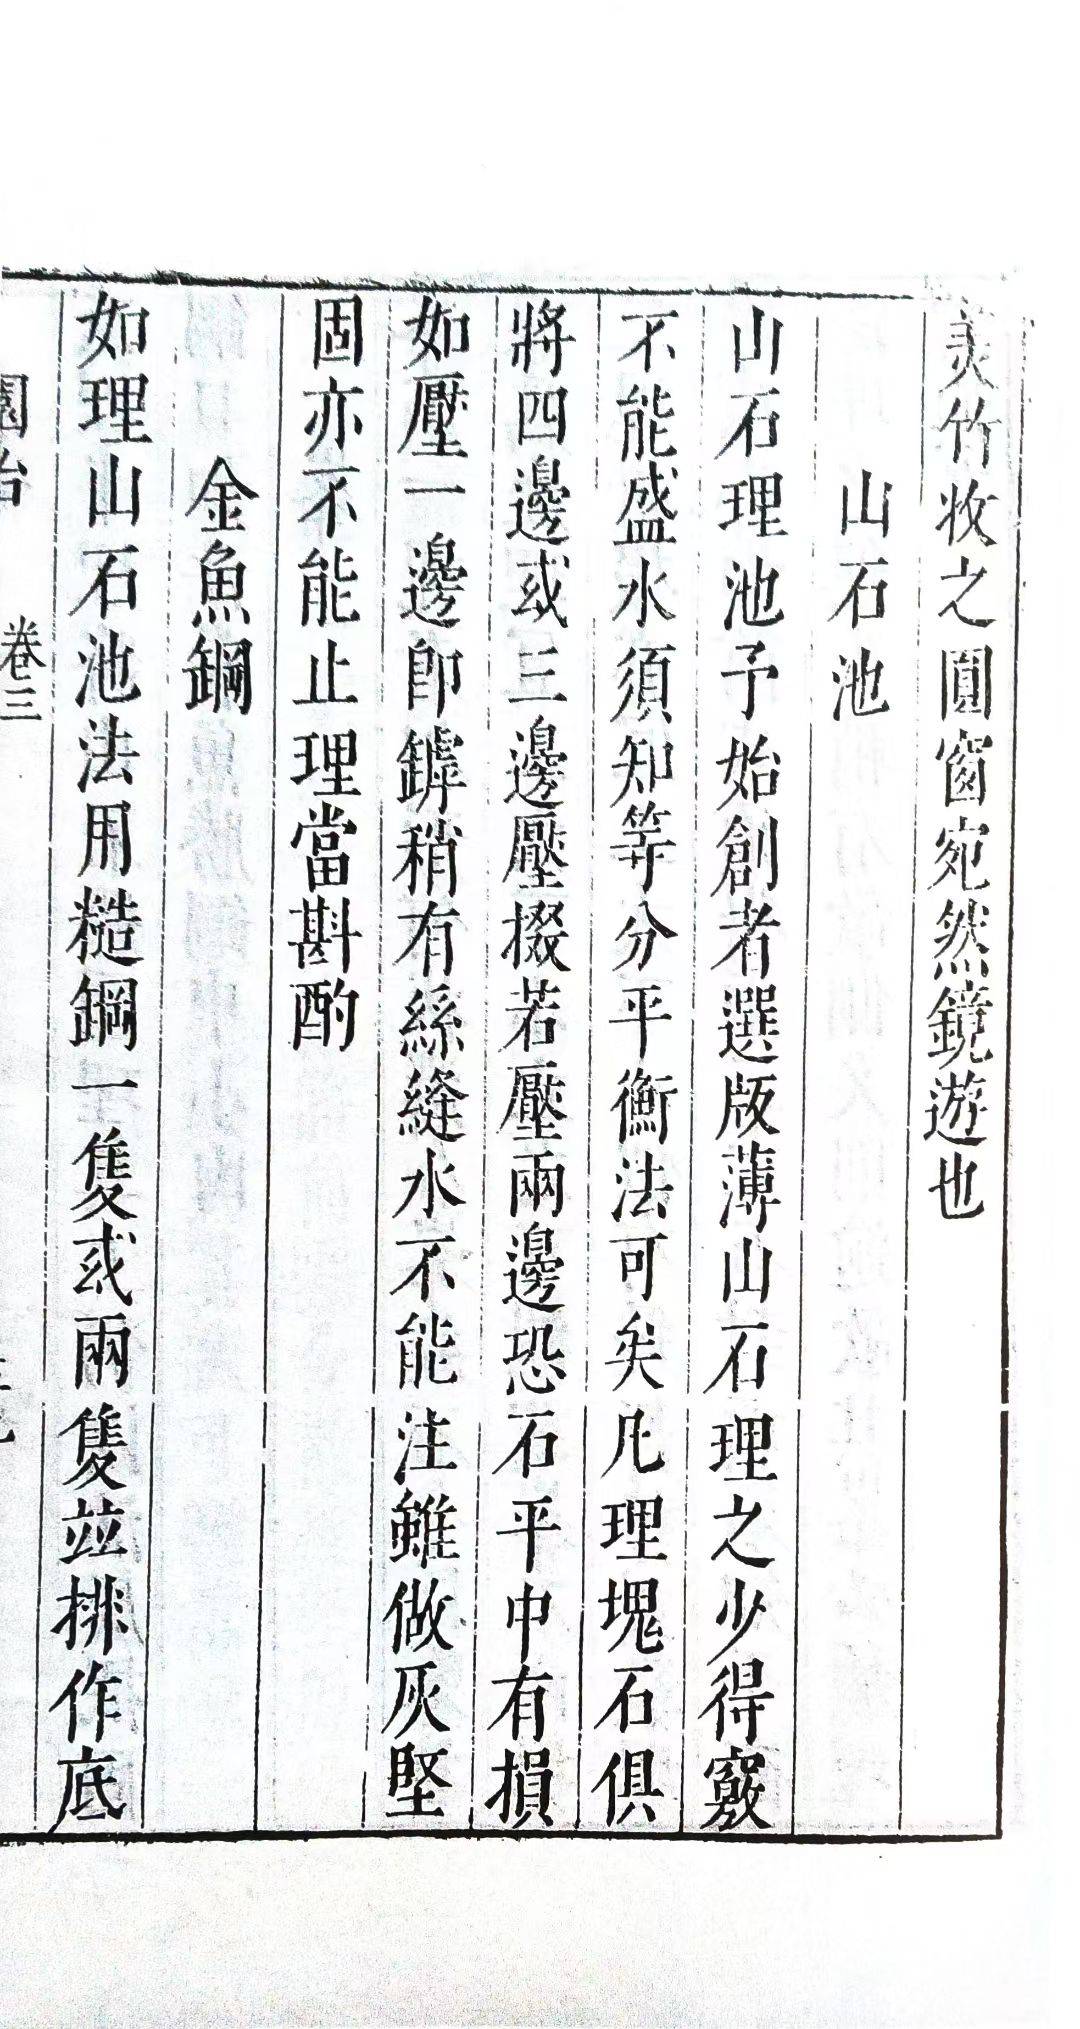 美竹收之圓窗宛然鏡遊也
山石池
山石理池予始創者選版薄山石理之少得竅
不能盛水須知等分平衡法可矣凡理塊石俱
將四邊或三邊壓掇若壓兩邊恐石平中有損
如壓一邊即罅稍有絲縫水不能注雖做灰堅
固亦不能止理當斟酌
金魚鋼
如理山石池法用糙鋼一隻或兩隻竝排作底
園冶 卷三